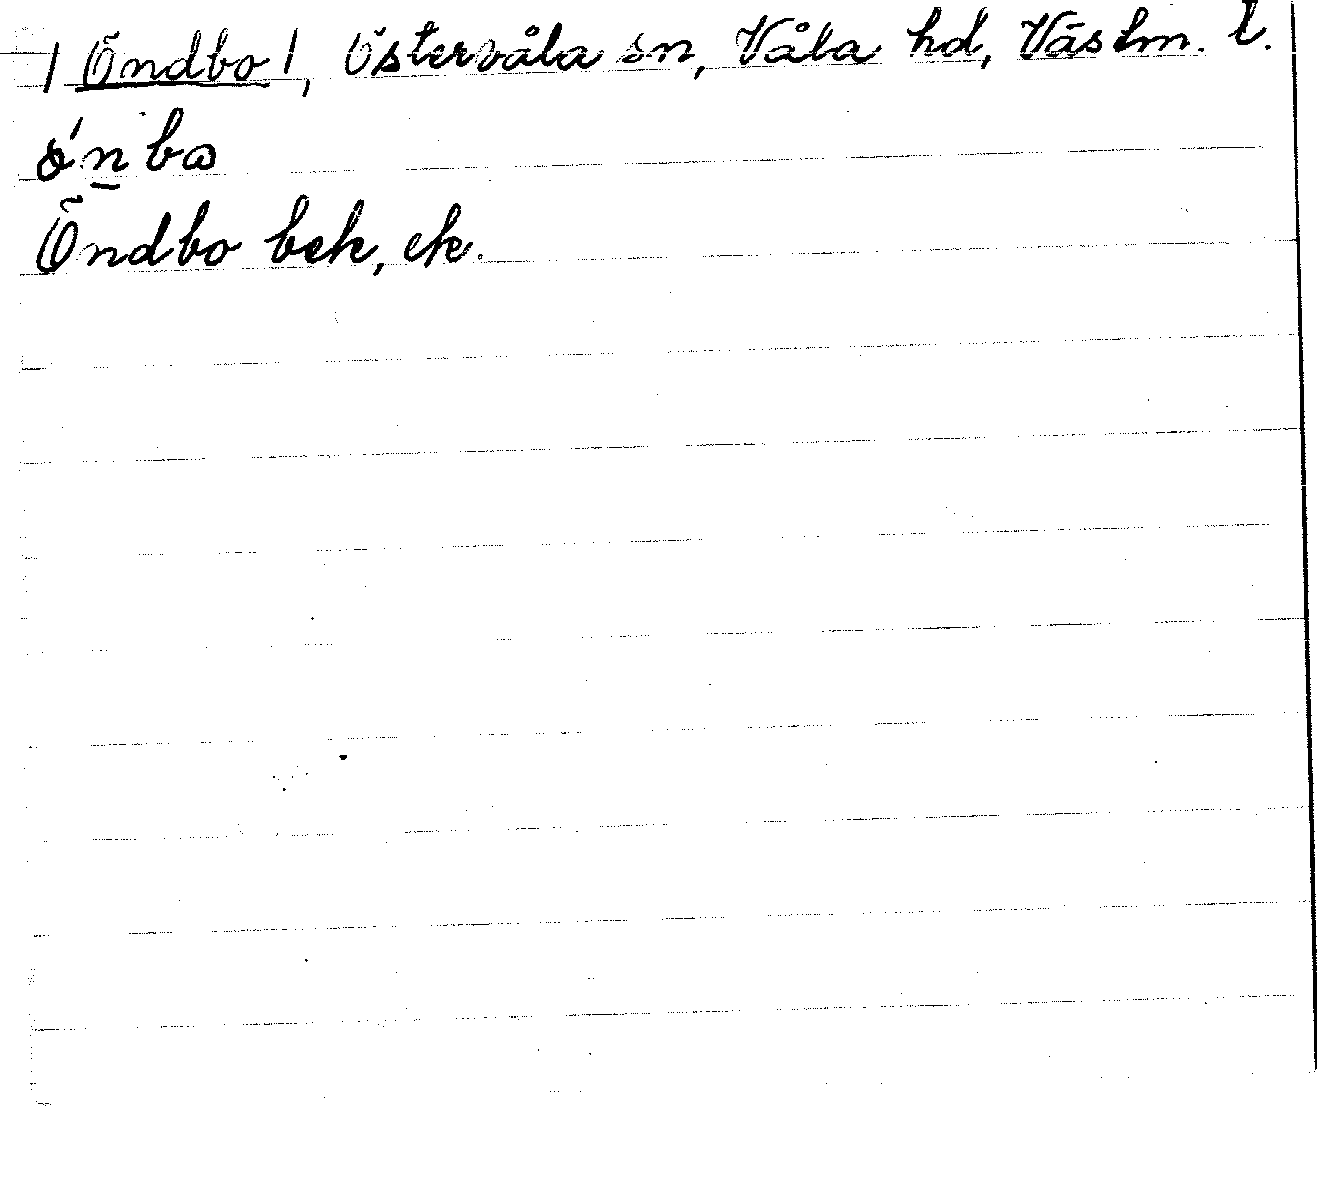 / Öndbo /, Östervåla sn, Våla hd, Västm. l.
Öndbo bek, ek.